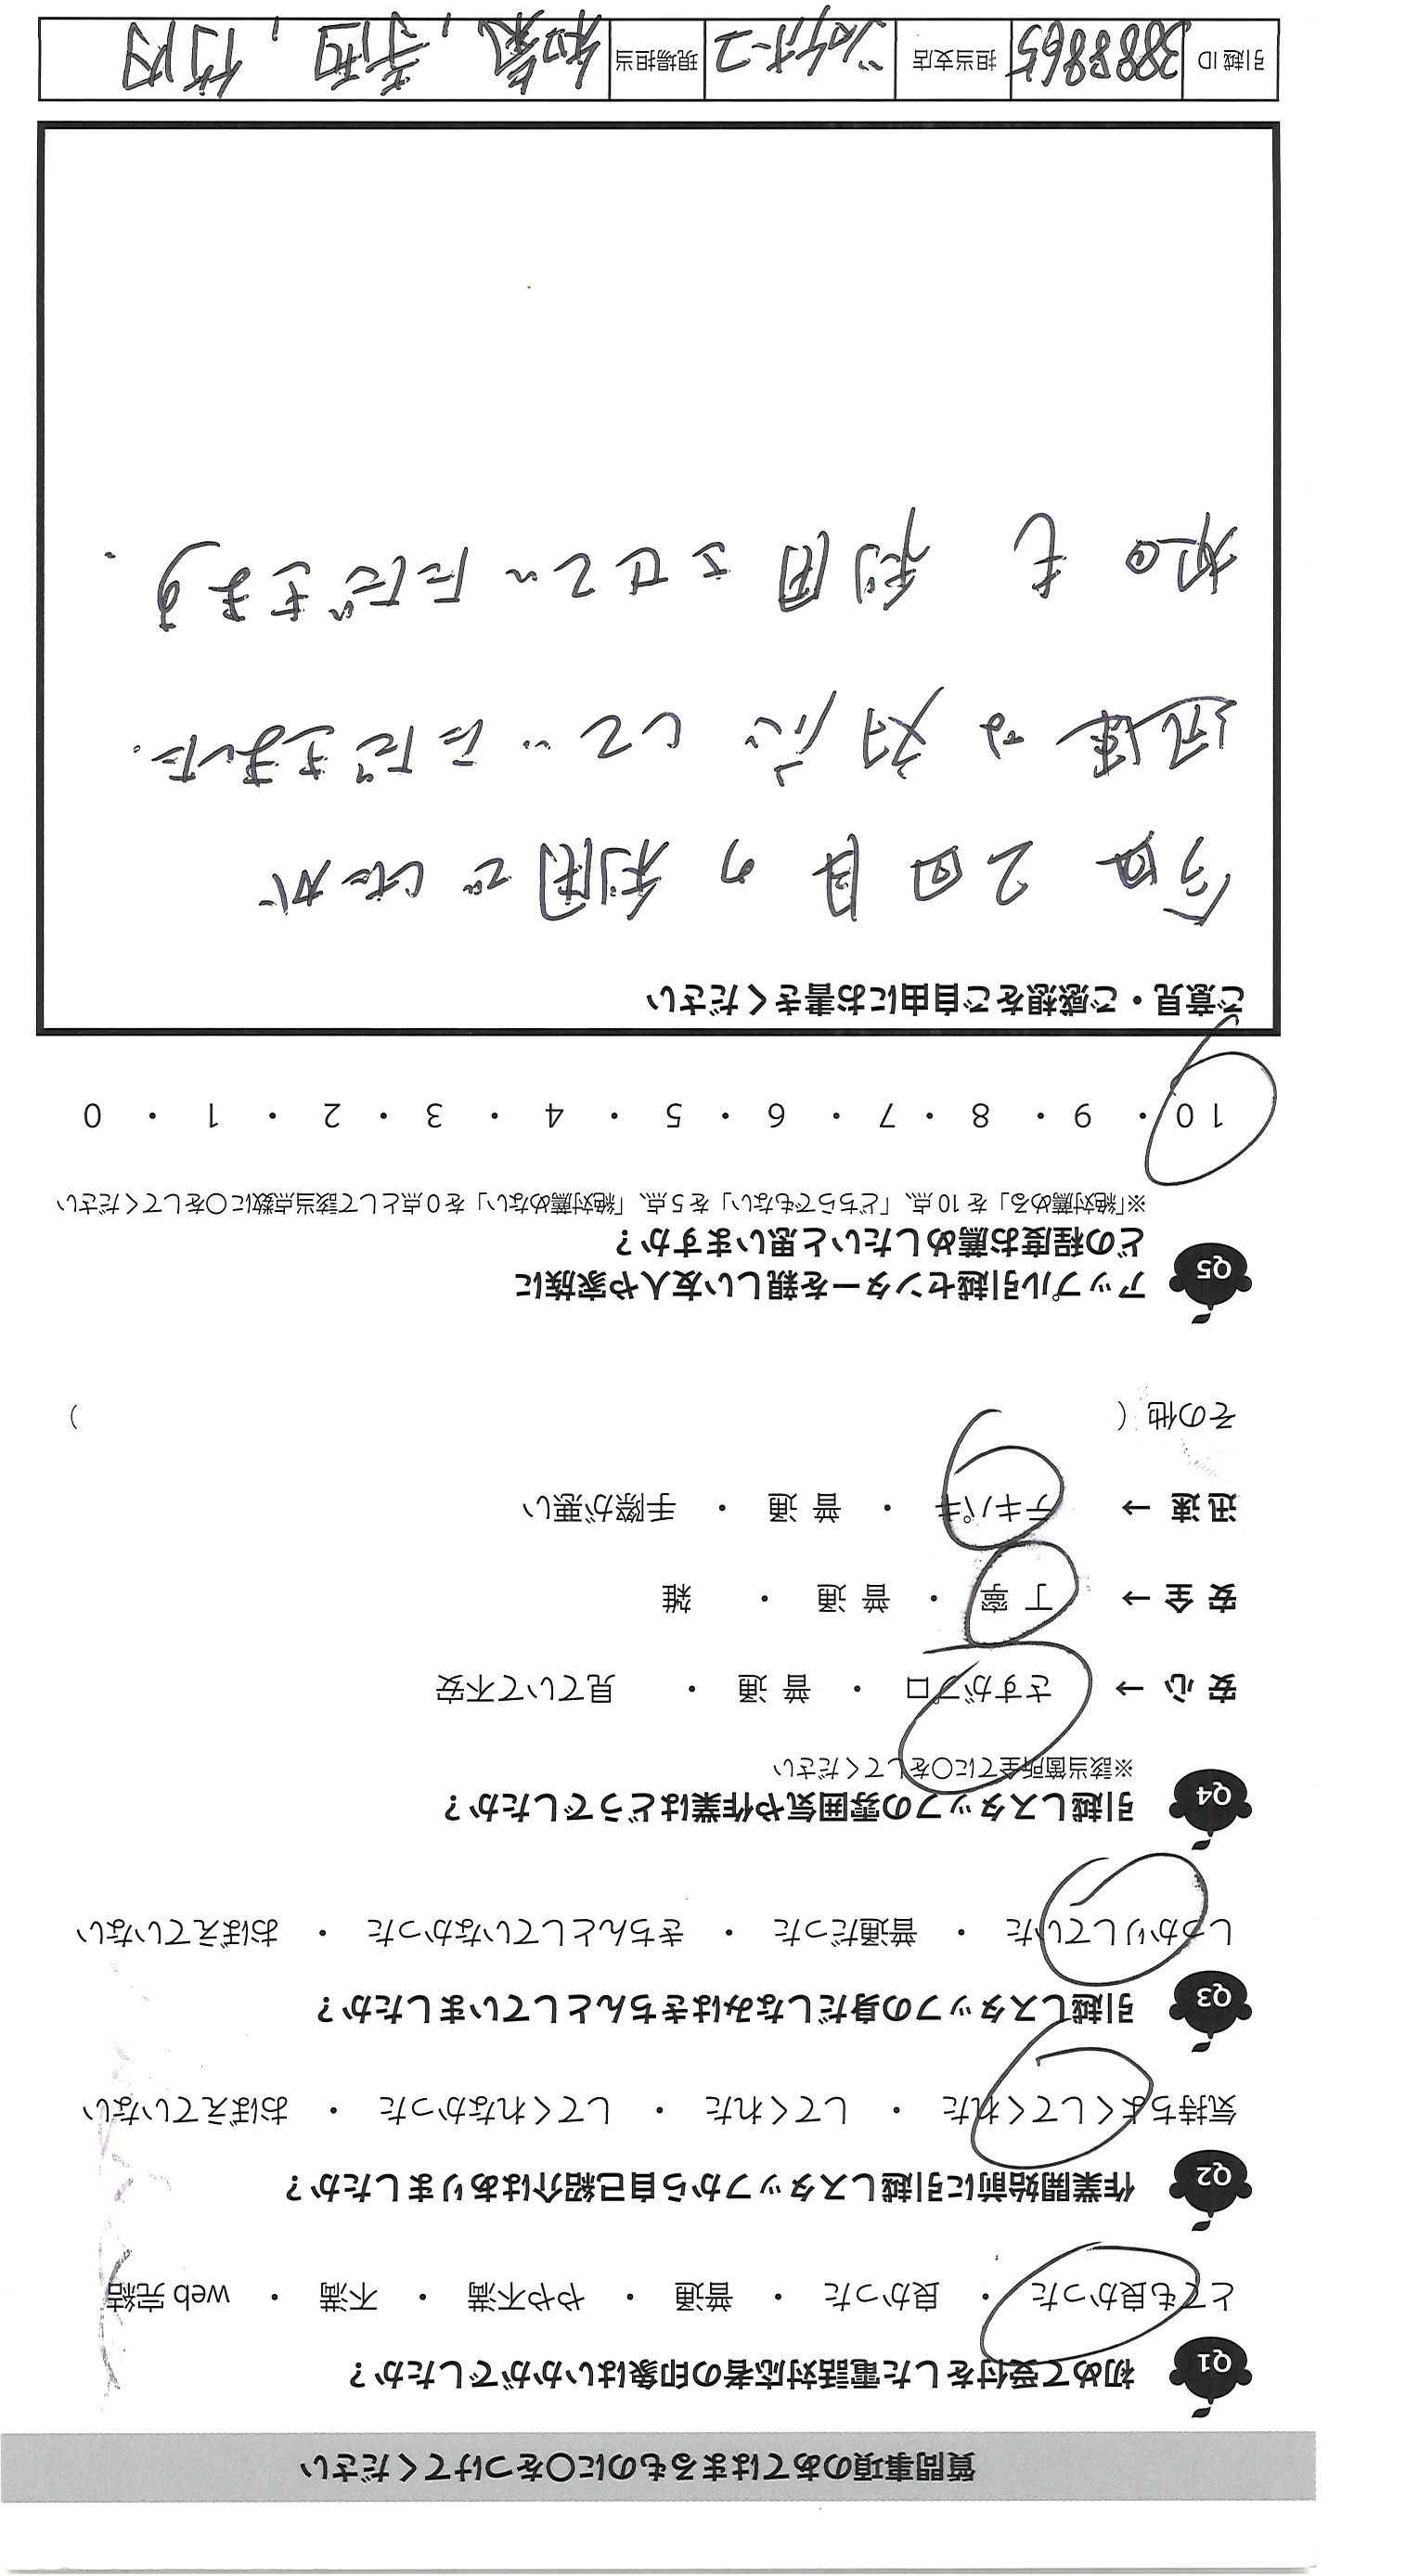 質問事項のあてはまるものに○をつけてください
Q1 初めて受付をした電話対応者の印象はいかがでしたか？
とても良かった ・ 良かった ・ 普通 ・ やや不満 ・ 不満 ・ web完結
Q2 作業開始前に引越しスタッフから自己紹介はありましたか？
気持ちよくしてくれた ・ してくれた ・ してくれなかった ・ おぼえていない
Q3 引越しスタッフの身だしなみはきちんとしていましたか？
しっかりしていた ・ 普通だった ・ きちんとしていなかった ・ おぼえていない
Q4 引越しスタッフの雰囲気や作業はどうでしたか？
※該当箇所全てに○をしてください
安心 → さすがプロ ・ 普通 ・ 見ていて不安
安全 → 丁寧 ・ 普通 ・ 雑
迅速 → テキパキ ・ 普通 ・ 手際が悪い
その他（ ）
Q5 アップル引越センターを親しい友人や家族に
どの程度お薦めしたいと思いますか？
※「絶対薦める」を10点、「どちらでもない」を5点、「絶対薦めない」を0点として該当点数に○をしてください
10 ・ 9 ・ 8 ・ 7 ・ 6 ・ 5 ・ 4 ・ 3 ・ 2 ・ 1 ・ 0
ご意見・ご感想をご自由にお書きください
今回2回目の利用でしたが
迅速な対応していただきました.
次回も利用させていただきます.
引越ID 3888865 担当支店 現場担当 竹内